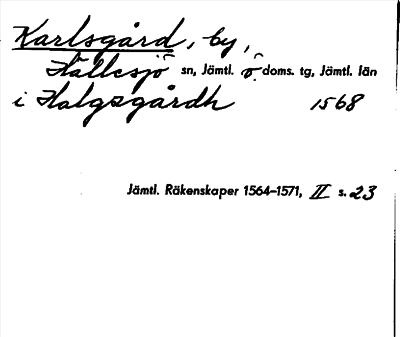 Karlsgård, by,
Hällesjö sn, Jämtl. ö. doms. tg, Jämtl. län
i Halgsgårdh 1568
Jämtl. Räkenskaper 1564-1571, II s. 23